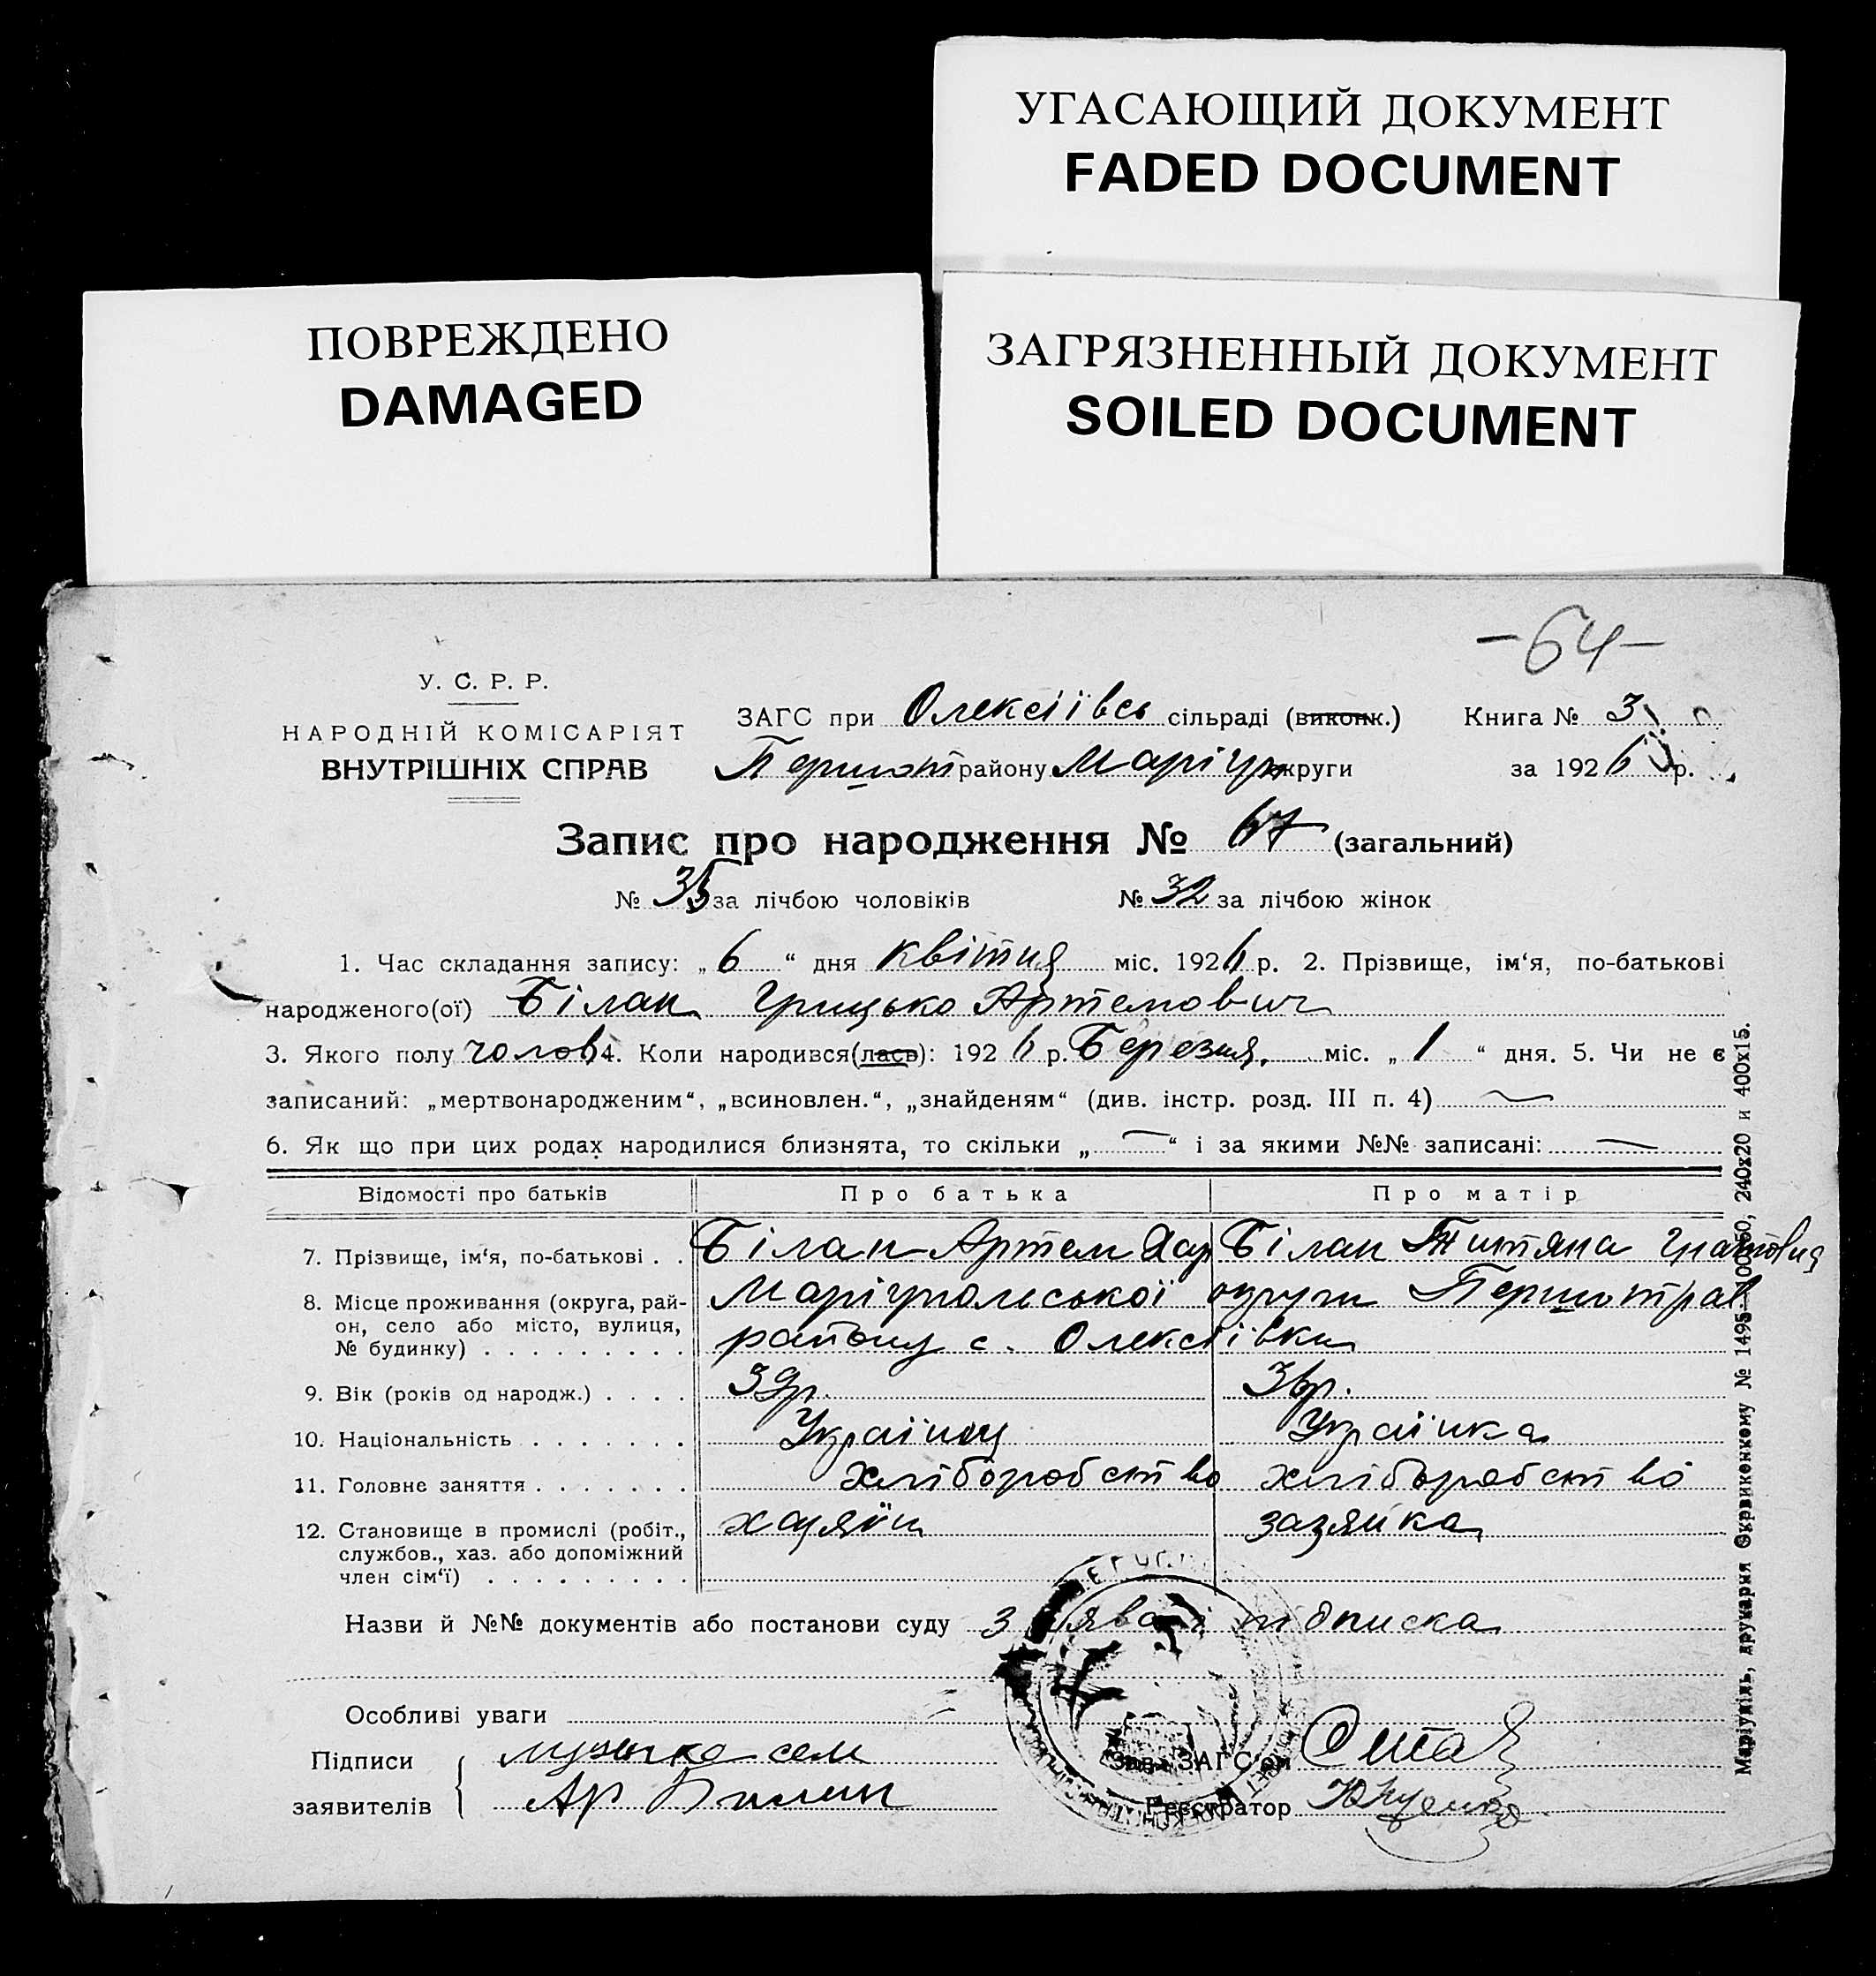 УГАСАЮЩИЙ ДОКУМЕНТ
FADED DOCUMENT
ПОВРЕЖДЕНО
DAMAGED
ЗАГРЯЗНЕННЫЙ ДОКУМЕНТ
SOILED DOCUMENT
-64-
У. С. Р. Р.
НАРОДНІЙ КОМІСАРІЯТ
ВНУТРІШНІХ СПРАВ
ЗАГС при Олексіївсь сільраді (виконк.) Книга № 3
Першот району Маріуп округи за 1926 р.
Запис про народження № 67 (загальний)
№ 35 за лічбою чоловіків № 32 за лічбою жінок
1. Час складання запису: „6“ дня квітня міс. 1926 р. 2. Прізвище, ім‘я, по-батькові
народженого(ої) Білан Грицько Артемович
3. Якого полу чолов 4. Коли народився(лась): 1926 р. Березня міс. „1“ дня. 5. Чи не є
записаний: „мертвонародженим“, „всиновлен.“, „знайденям“ (див. інстр. розд. III п. 4)
6. Як що при цих родах народилися близнята, то скільки „—“ і за якими №№ записані: —
Відомості про батьків Про батька Про матір
7. Прізвище, ім‘я, по-батькові . . Білан Артем Хар Білан Титяна
8. Місце проживання (округа, рай-
он, село або місто, вулиця,
№ будинку) . . . . . . . . .
Маріупольської округи Першотрав
району с. Олексіївки
9. Вік (років од народж.) . . . . 39р. 36р.
10. Національність . . . . . . . Українец Українка
11. Головне заняття . . . . . . . хліборобство хліборобство
12. Становище в промислі (робіт.,
службов., хаз. або допоміжний
член сім‘ї) . . . . . . . . .
хазяїн зазяйка
Назви й №№ документів або постанови суду Заява і підписка
Особливі уваги
Підписи
заявителів
Ар Билан
Зав. ЗАГС‘ом
Реєстратор
Маріупіль, друкарня Окрвиконкому № 1495—100х60, 240х20 и 400х15.